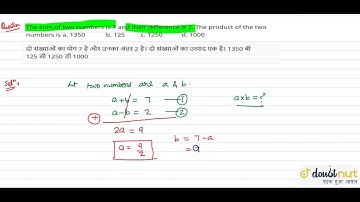 Question
The sum of two numbers is 7 and their difference is 2. The product of the two
numbers is a. 1350 b. 125 c. 1250 d. 1000
दो संख्याओं का योग 7 है और उनका अंतर 2 है। दो संख्याओं का उत्पाद एक है। 1350 बी
125 सी 1250 डी 1000
Solⁿ,
let two numbers are a & b.
a+b = 7 — ①
a-b = 2 — ②
a×b = ?
+
2a = 9
a = 9/2
b = 7-a
= 9
doubtnut
पढ़ना हुआ आसान